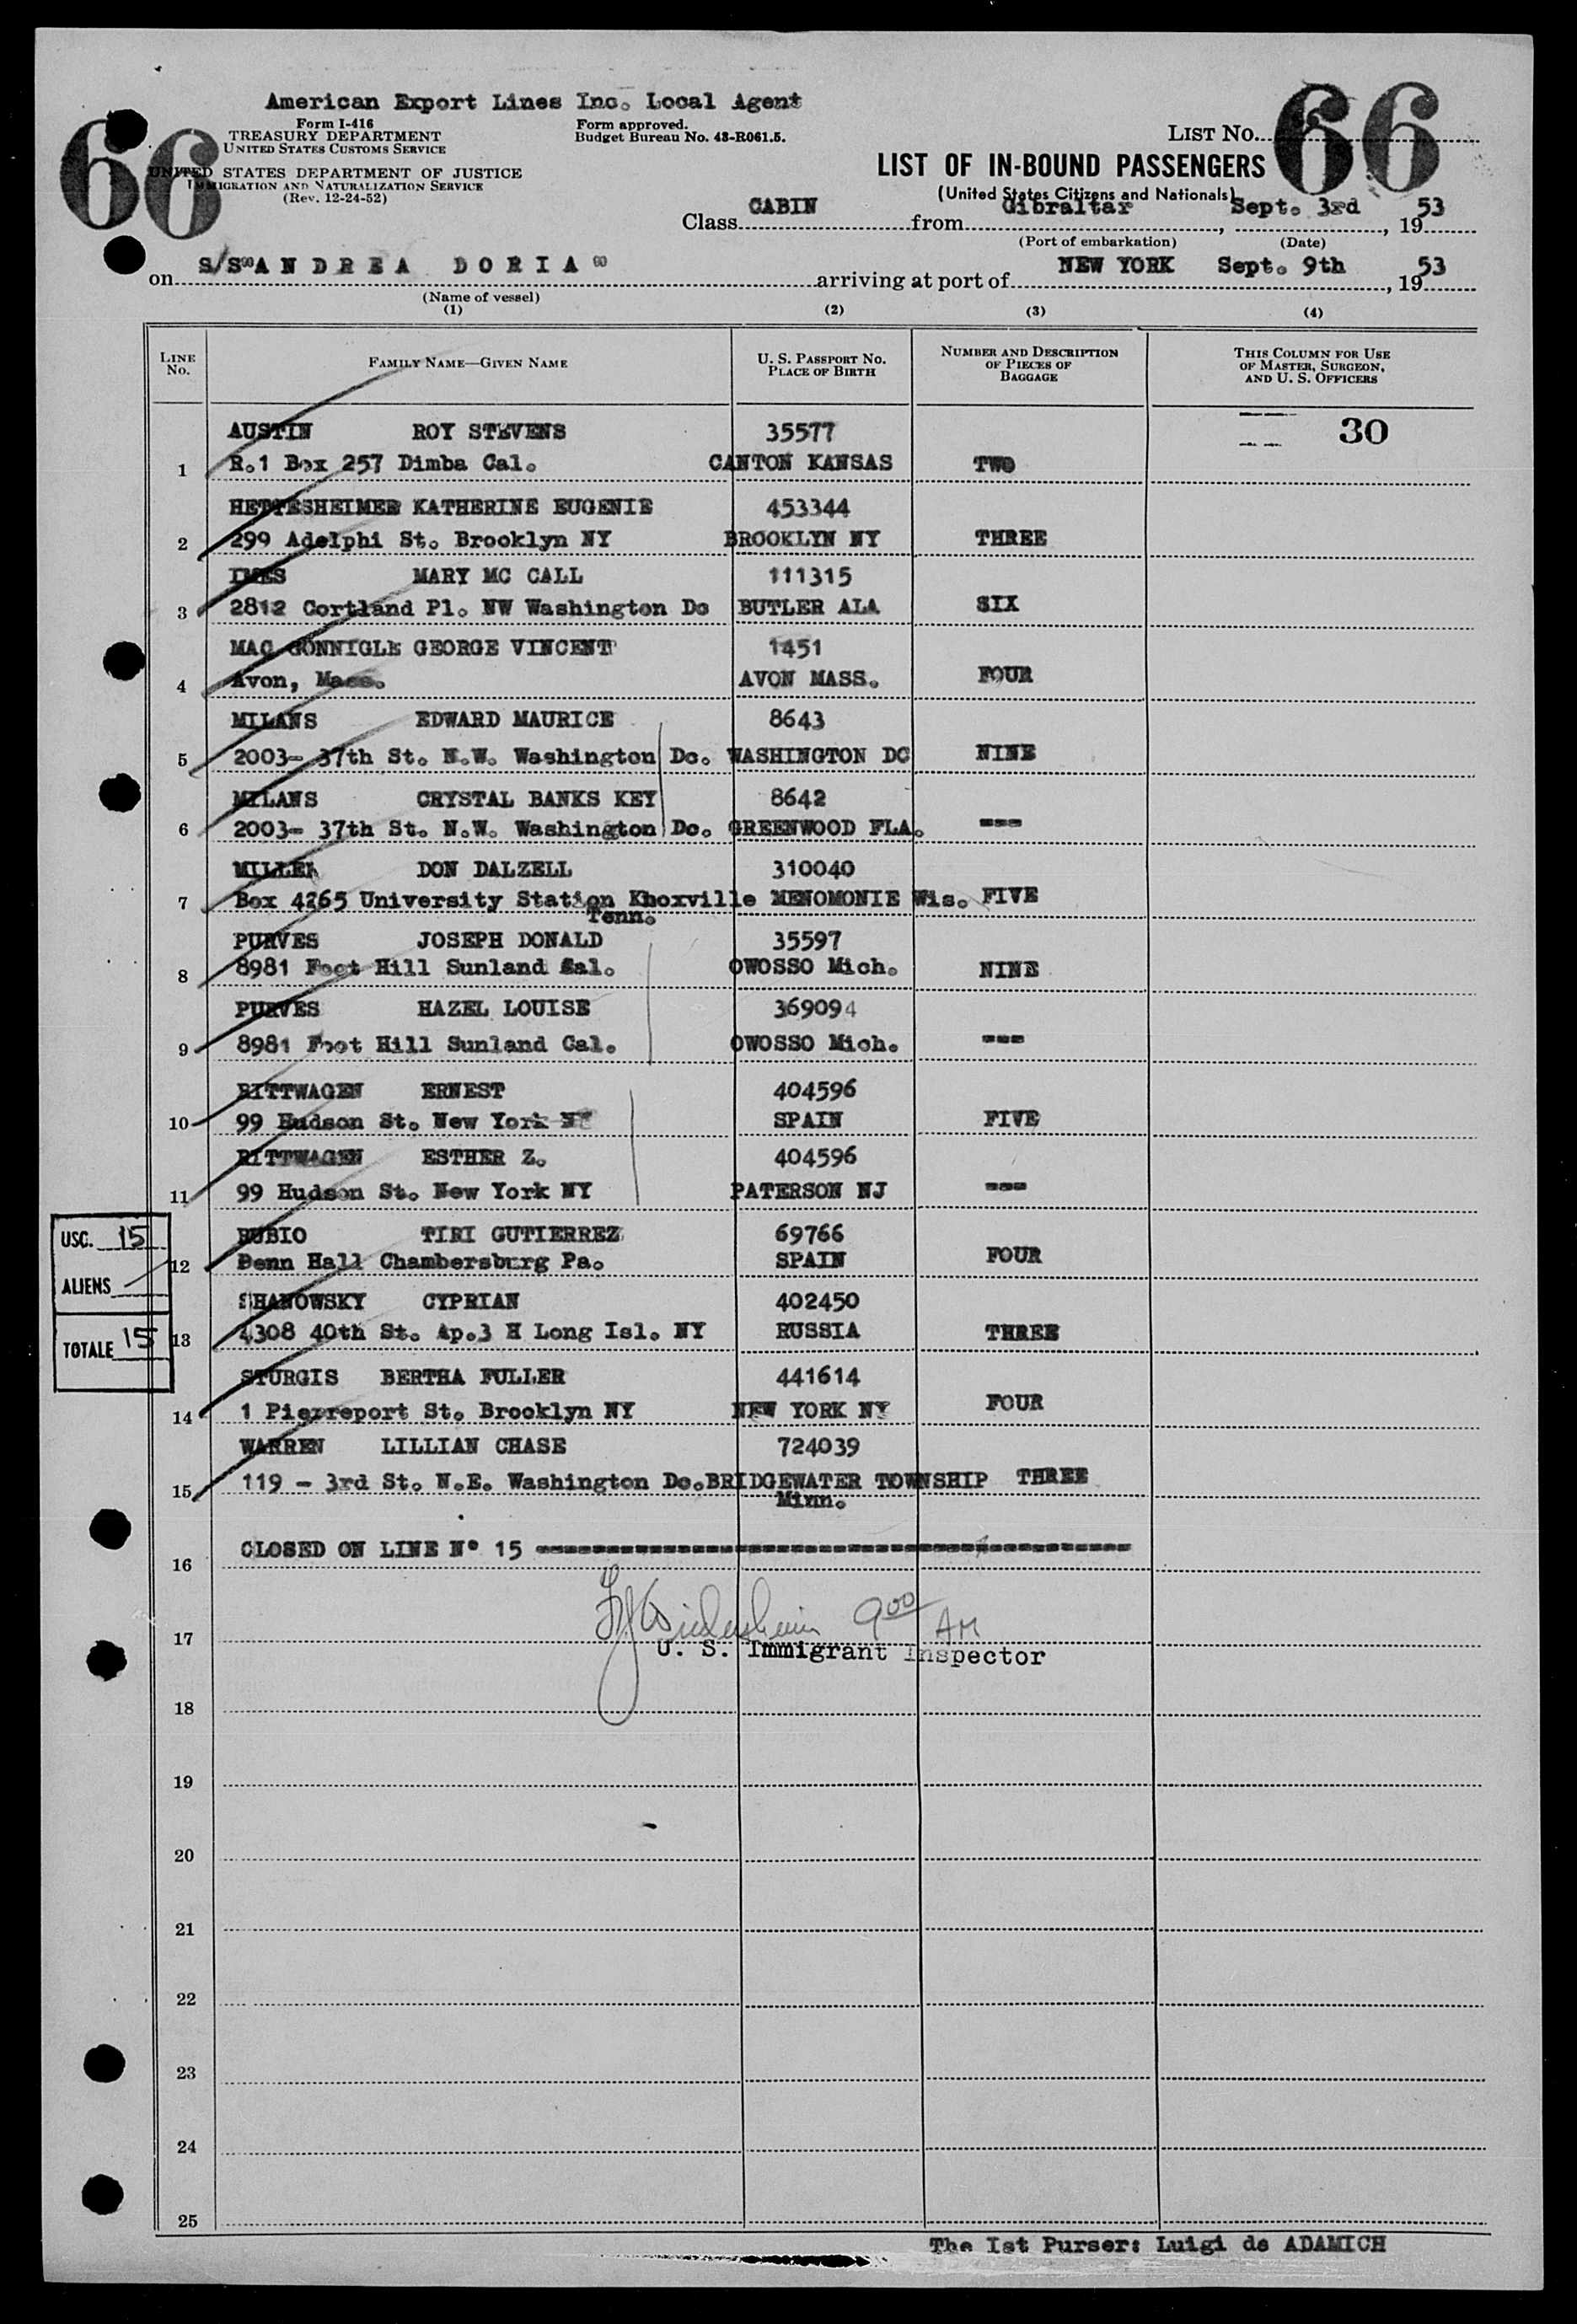 American Export Lines Inc. Local Agent
Form I-416
TREASURY DEPARTMENT
UNITED STATES CUSTOMS SERVICE
UNITED STATES DEPARTMENT OF JUSTICE
IMMIGRATION AND NATURALIZATION SERVICE
(Rev. 12-24-52)
Form approved.
Budget Bureau No. 43-R061.5.
66
LIST NO. 66
LIST OF IN-BOUND PASSENGERS
(United States Citizens and Nationals)
Class CABIN from Gibraltar, Sept. 3rd, 1953
(Port of embarkation) (Date)
on S/S "ANDREA DORIA" arriving at port of NEW YORK Sept. 9th, 1953
(Name of vessel)
(1) (2) (3) (4)
LINE NO. FAMILY NAME—GIVEN NAME U. S. PASSPORT NO. PLACE OF BIRTH NUMBER AND DESCRIPTION OF PIECES OF BAGGAGE THIS COLUMN FOR USE OF MASTER, SURGEON, AND U. S. OFFICERS
AUSTIN ROY STEVENS 35577 30
1 R.1 Box 257 Dimba Cal. CANTON KANSAS TWO
HETTESHEIMER KATHERINE EUGENIE 453344
2 299 Adelphi St. Brooklyn NY BROOKLYN NY THREE
IMES MARY MC CALL 111315
3 2812 Cortland Pl. NW Washington Dc BUTLER ALA SIX
MAC GONNIGLE GEORGE VINCENT 1451
4 Avon, Mass. AVON MASS. FOUR
MILANS EDWARD MAURICE 8643
5 2003- 37th St. N.W. Washington Dc. WASHINGTON DC NINE
MILANS CRYSTAL BANKS KEY 8642
6 2003- 37th St. N.W. Washington Dc. GREENWOOD FLA. ---
MILLER DON DALZELL 310040
7 Box 4265 University Station Knoxville MENOMONIE Wis. FIVE
Tenn.
PURVES JOSEPH DONALD 35597
8 8981 Foot Hill Sunland Cal. OWOSSO Mich. NINE
PURVES HAZEL LOUISE 369094
9 8981 Foot Hill Sunland Cal. OWOSSO Mich. ---
RITTWAGEN ERNEST 404596
10 99 Hudson St. New York NY SPAIN FIVE
RITTWAGEN ESTHER Z. 404596
11 99 Hudson St. New York NY PATERSON NJ ---
RUBIO TIRI GUTIERREZ 69766
12 Penn Hall Chambersburg Pa. SPAIN FOUR
SHANOWSKY CYPRIAN 402450
13 4308 40th St. Ap.3 H Long Isl. NY RUSSIA THREE
STURGIS BERTHA FULLER 441614
14 1 Pierreport St. Brooklyn NY NEW YORK NY FOUR
WARREN LILLIAN CHASE 724039
15 119 - 3rd St. N.E. Washington Dc. BRIDGEWATER TOWNSHIP THREE
Minn.
USC. 15
ALIENS
TOTALE 15
16 CLOSED ON LINE N° 15
900 AM
17
U. S. Immigrant Inspector
18
19
20
21
22
23
24
25
The 1st Purser: Luigi de ADAMICH